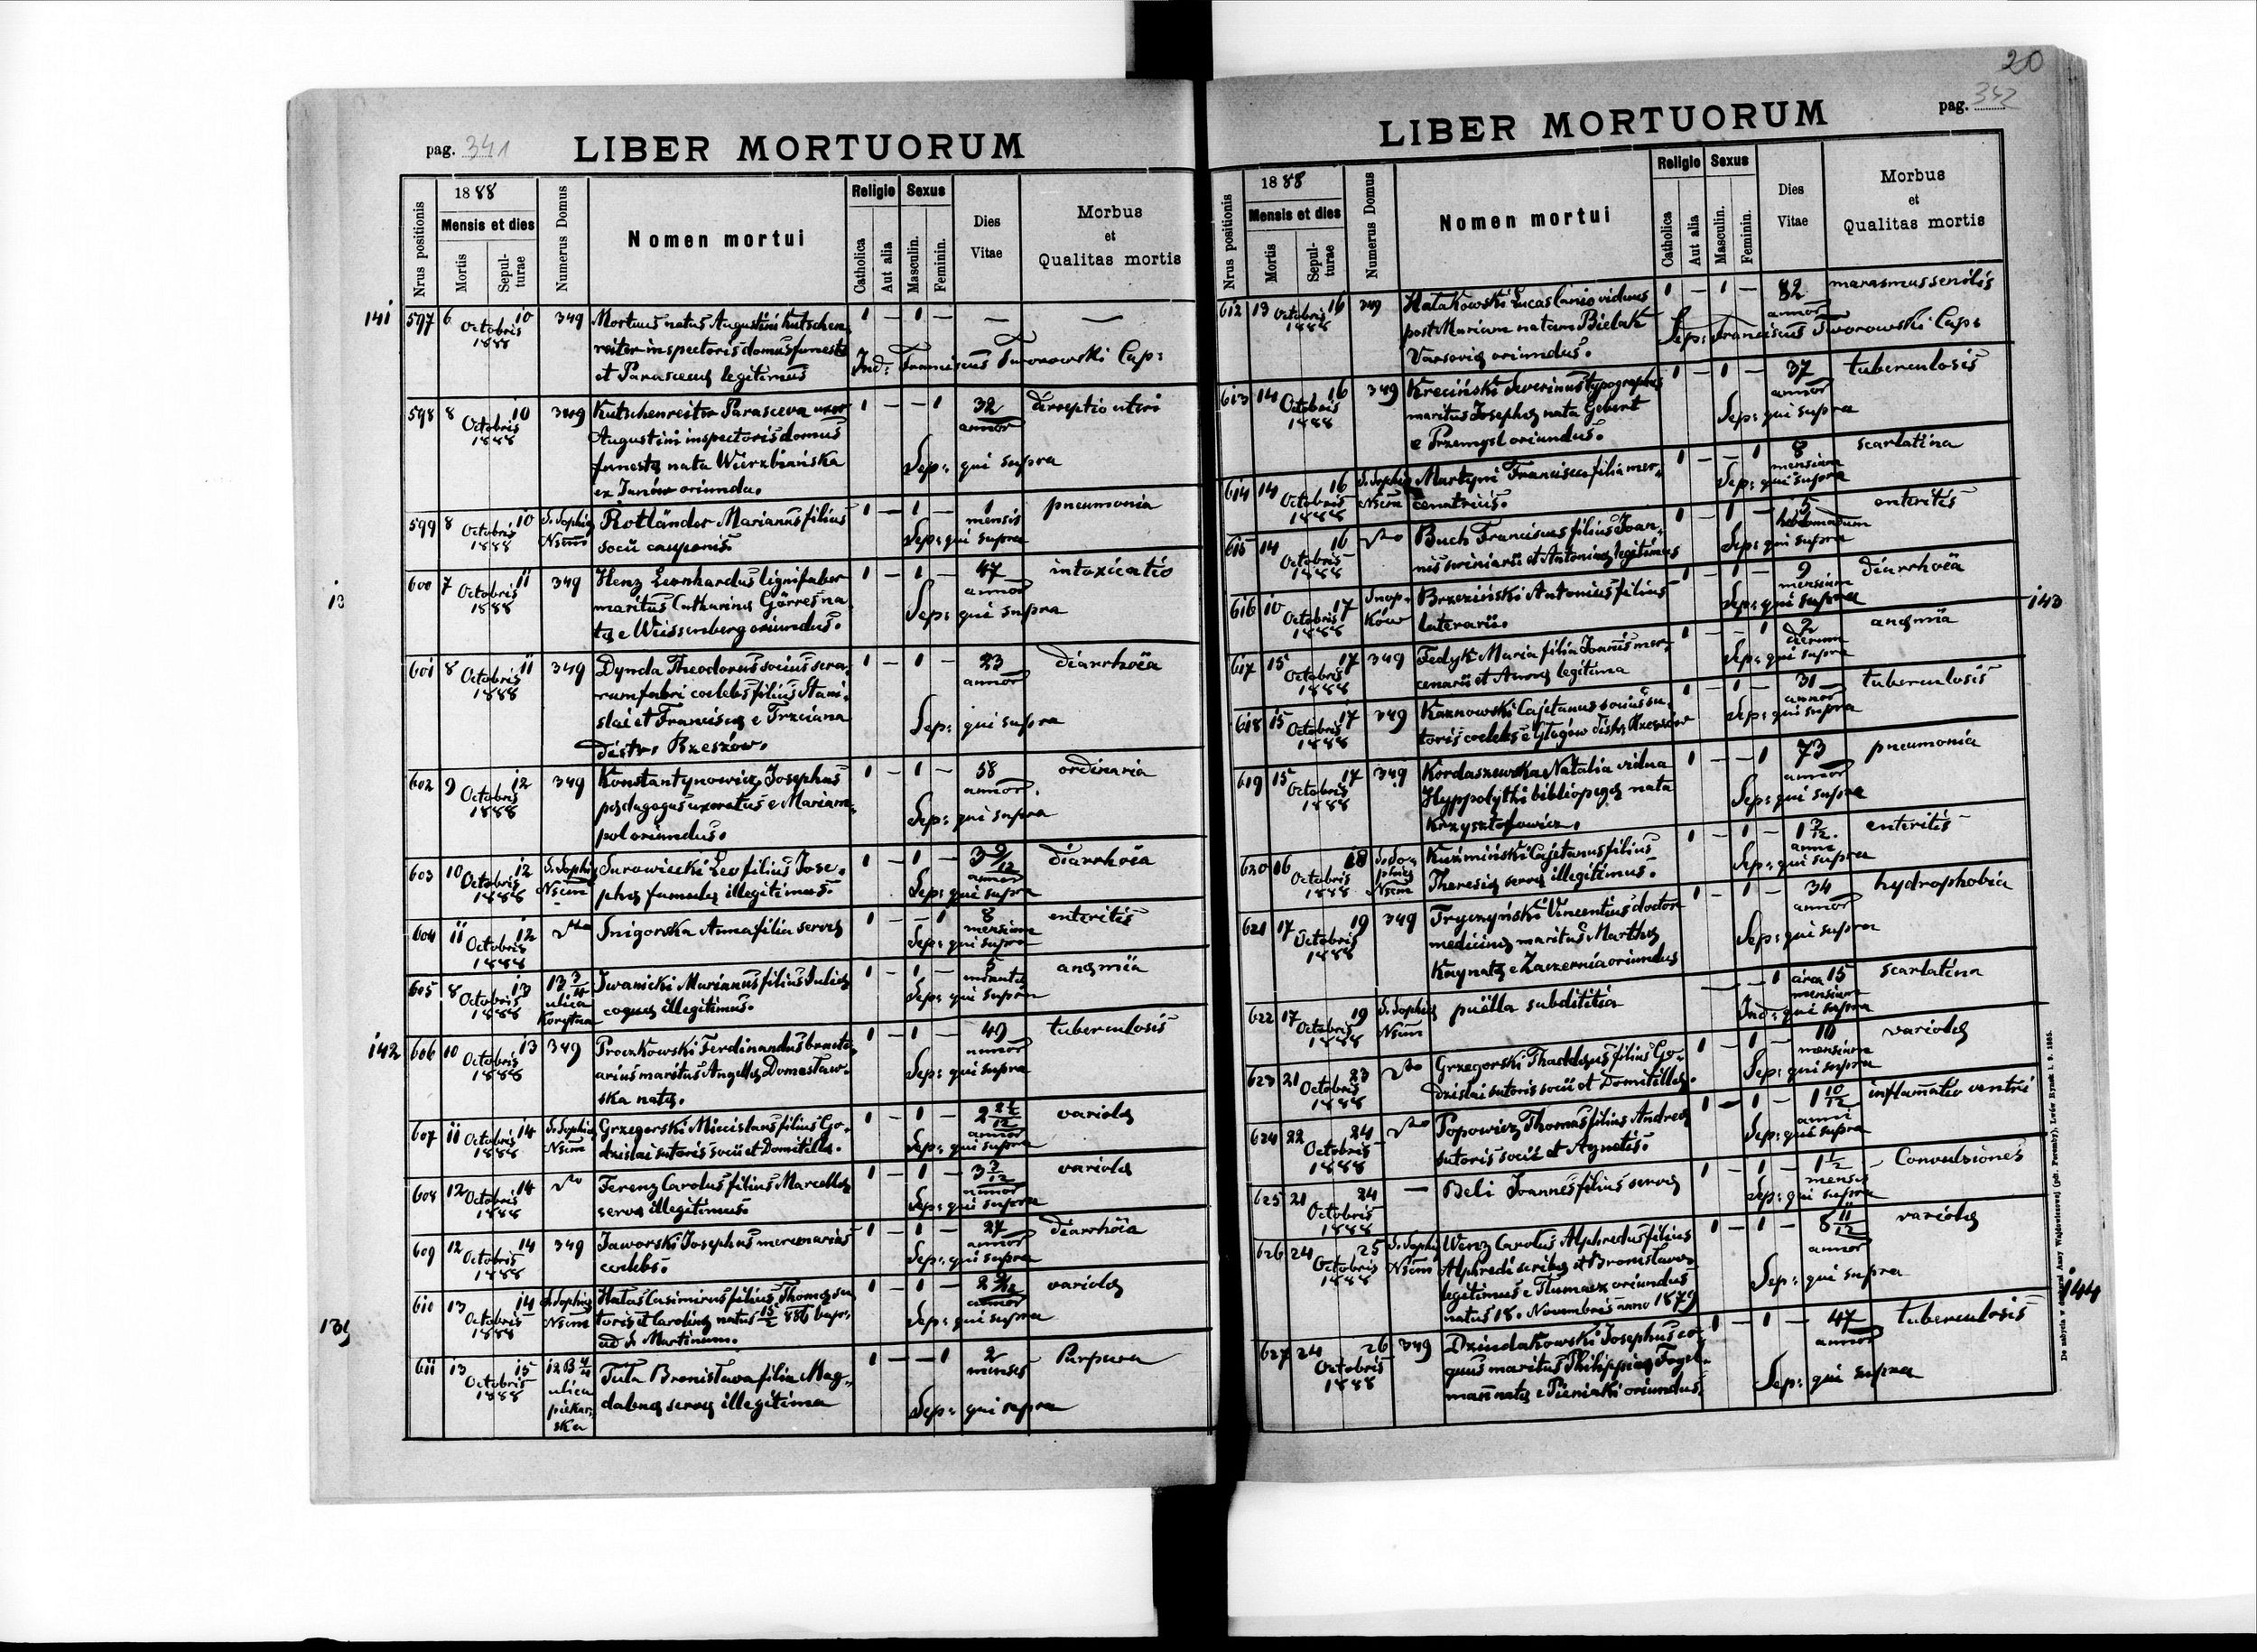 pag. 341
LIBER MORTUORUM
Nrus positionis
1888
Mensis et dies
Mortis
Sepulturae
Numerus Domus
Nomen mortui
Religio
Catholica
Aut alia
Sexus
Masculin.
Feminin.
Dies Vitae
Morbus et Qualitas mortis
141
597 6 Octobris 1888 10 349 Mortuus natus Augustini Kutschen- 1 — 1 — — —
reiter inspectoris domus funestæ
et Parascevæ legitimus
Ind: Franciscus Tworowski Cap:
598 8 Octobris 1888 10 349 Kutschenreiter Parasceva uxor 1 — — 1 32 annor
Augustini inspectoris domus
funestæ nata Wierzbiańska
ex Janów oriunda.
Sep: qui supra
599 8 Octobris 1888 10 S. Sophiæ Nsem Rotländer Marianus filius 1 — 1 — 1 mensis pneumonia
socii cauponis.
Sep: qui supra
600 7 Octobris 1888 11 349 Henz Leonhardus lignifaber 1 — 1 — 47 annor intoxicatio
maritus Catharinæ Görres na-
tæ e Weissenberg oriundus.
Sep: qui supra
601 8 Octobris 1888 11 349 Dynda Theodorus socius sera- 1 — 1 — 23 annor diarrhöea
rum fabri coelebs filius Stani-
slai et Franciscæ e Trzciana
distr. Rzeszów.
Sep: qui supra
602 9 Octobris 1888 12 349 Konstantynowicz Josephus 1 — 1 — 58 annor. ordinaria
pædagogus uxoratus e Mariam-
pol oriundus.
Sep: qui supra
603 10 Octobris 1888 12 S. Sophiæ Nsem Surowiecki Leo filius Jose- 1 — 1 — 3 9/12 annor diarrhöea
phæ famulæ illegitimus.
Sep: qui supra
604 11 Octobris 1888 12 dto Snigorska Anna filia servæ 1 — — 1 8 mensium enteritis
Sep: qui supra
605 8 Octobris 1888 13 13 3/4 ulica Korytna Iwanicki Marianus filius Juliæ 1 — 1 — 5 anæmia
coquæ illegitimus.
Sep: qui supra
142
606 10 Octobris 1888 13 349 Proczkowski Ferdinandus 1 — 1 — 49 annor tuberculosis
arius maritus Angelæ Domesław-
ska natæ.
Sep: qui supra
607 11 Octobris 1888 14 S. Sophiæ Nsem Grzegorski Miecislaus filius Go- 1 — 1 — annor variolæ
dzislai sutoris socii et Domitillæ.
Sep: qui supra
608 12 Octobris 1888 14 dto Ferenz Carolus filius Marcellæ 1 — 1 — 3 annor variolæ
servæ illegitimus.
Sep: qui supra
609 12 Octobris 1888 14 349 Jaworski Josephus mercenarius 1 — 1 — 27 annor diarrhöea
coelebs.
Sep: qui supra
610 13 Octobris 1888 14 S. Sophiæ Nsem Hataś Casimirus filius Thomæ su- 1 — 1 — annor variolæ
toris et Carolinæ natus 15/2 886 bapt:
ad S. Martinum.
Sep: qui supra
139
611 13 Octobris 1888 15 12 B 4/4 ulica piekar- ska Tuła Bronisława filia Mag- 1 — — 1 2 menses Purpura
dalenæ servæ illegitima
Sep: qui supra
20
pag. 342
LIBER MORTUORUM
Nrus positionis
1888
Mensis et dies
Mortis
Sepulturae
Numerus Domus
Nomen mortui
Religio
Catholica
Aut alia
Sexus
Masculin.
Feminin.
Dies Vitae
Morbus et Qualitas mortis
612 13 Octobris 1888 16 349 Hatakowski Lucas lanio viduus 1 — 1 — 82 annor marasmus senilis
post Mariam natam Bielak
Varsoviæ oriundus.
Sep: Franciscus Tworowski Cap:
613 14 Octobris 1888 16 349 Kreciński Severinus typographus 1 — 1 — 37 annor tuberculosis
maritus Josephæ nata Gebert
e Przemyśl oriundus.
Sep: qui supra
614 14 Octobris 1888 16 S. Sophiæ Nsem Martyni Francisca filia mer- 1 — — 1 8 mensium scarlatina
cenatricis.
Sep: qui supra
615 14 Octobris 1888 16 dto Buch Franciscus filius Joan- 1 — 1 — 5 hebdomadum enteritis
nis scriniarii et Antoninæ legitimus
Sep: qui supra
616 10 Octobris 1888 17 Snop- ków Brzeziński Antonius filius 1 — 1 — 9 mensium diarrhöea
laterarii.
Sep: qui supra
143
617 15 Octobris 1888 17 349 Fedyk Maria filia Joannis mer- 1 — — 1 2 dierum anæmia
cenarii et Annæ legitima
Sep: qui supra
618 15 Octobris 1888 17 349 Karnowski Cajetanus socius su- 1 — 1 — 31 annor tuberculosis
toris coelebs e Głogów distr. Rzeszów
Sep: qui supra
619 15 Octobris 1888 17 349 Kordaszewska Natalia vidua 1 — — 1 73 annor pneumonia
Hyppolythi bibliopegæ nata
Krzysztofowicz.
Sep: qui supra
620 16 Octobris 1888 18 S. So- phiæ Nsem Kuźmiński Cajetanus filius 1 — 1 — anni enteritis
Theresiæ servæ illegitimus.
Sep: qui supra
621 17 Octobris 1888 19 349 Tryczyński Vincentius doctor 1 — 1 — 34 annor hydrophobia
medicinæ maritus Marthæ
natæ e Zaczernia oriundus
Sep: qui supra
622 17 Octobris 1888 19 S. Sophiæ Nsem puella subdititia — — — 1 circa 15 mensium scarlatina
Ind: qui supra
623 21 Octobris 1888 23 dto Grzegorski Thaddæus filius Go- 1 — 1 — 10 mensium variolæ
dzislai sutoris socii et Domitillæ.
Sep: qui supra
624 22 Octobris 1888 24 dto Popowicz Thomas filius Andreæ 1 — 1 — 1 10/12 anni inflamatio ventri
sutoris socii et Agnetis.
Sep: qui supra
625 21 Octobris 1888 24 — Beli Joannes filius servæ 1 — 1 — 1 1/2 mensis Convulsiones
Sep: qui supra
626 24 Octobris 1888 25 S. Sophiæ Nsem Wenz Carolus Alphredus filius 1 — 1 — 8 11/12 annor variolæ
Alphredi scribæ et Bronislavæ
legitimus e Tłumacz oriundus
natus 18. Novembris anno 1879
Sep: qui supra
144
627 24 Octobris 1888 26 349 Dzindakowski Josephus co- 1 — 1 — 47 annor tuberculosis
quus maritus Philippinæ Fogel-
mann natæ e Pieniaki oriundus.
Sep: qui supra